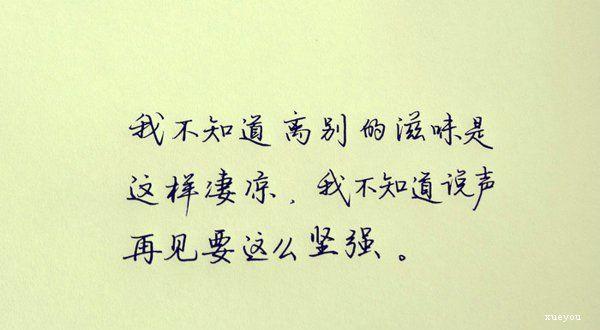 我不知道离别的滋味是
这样凄凉，我不知道说声
再见要这么坚强。
xueyou